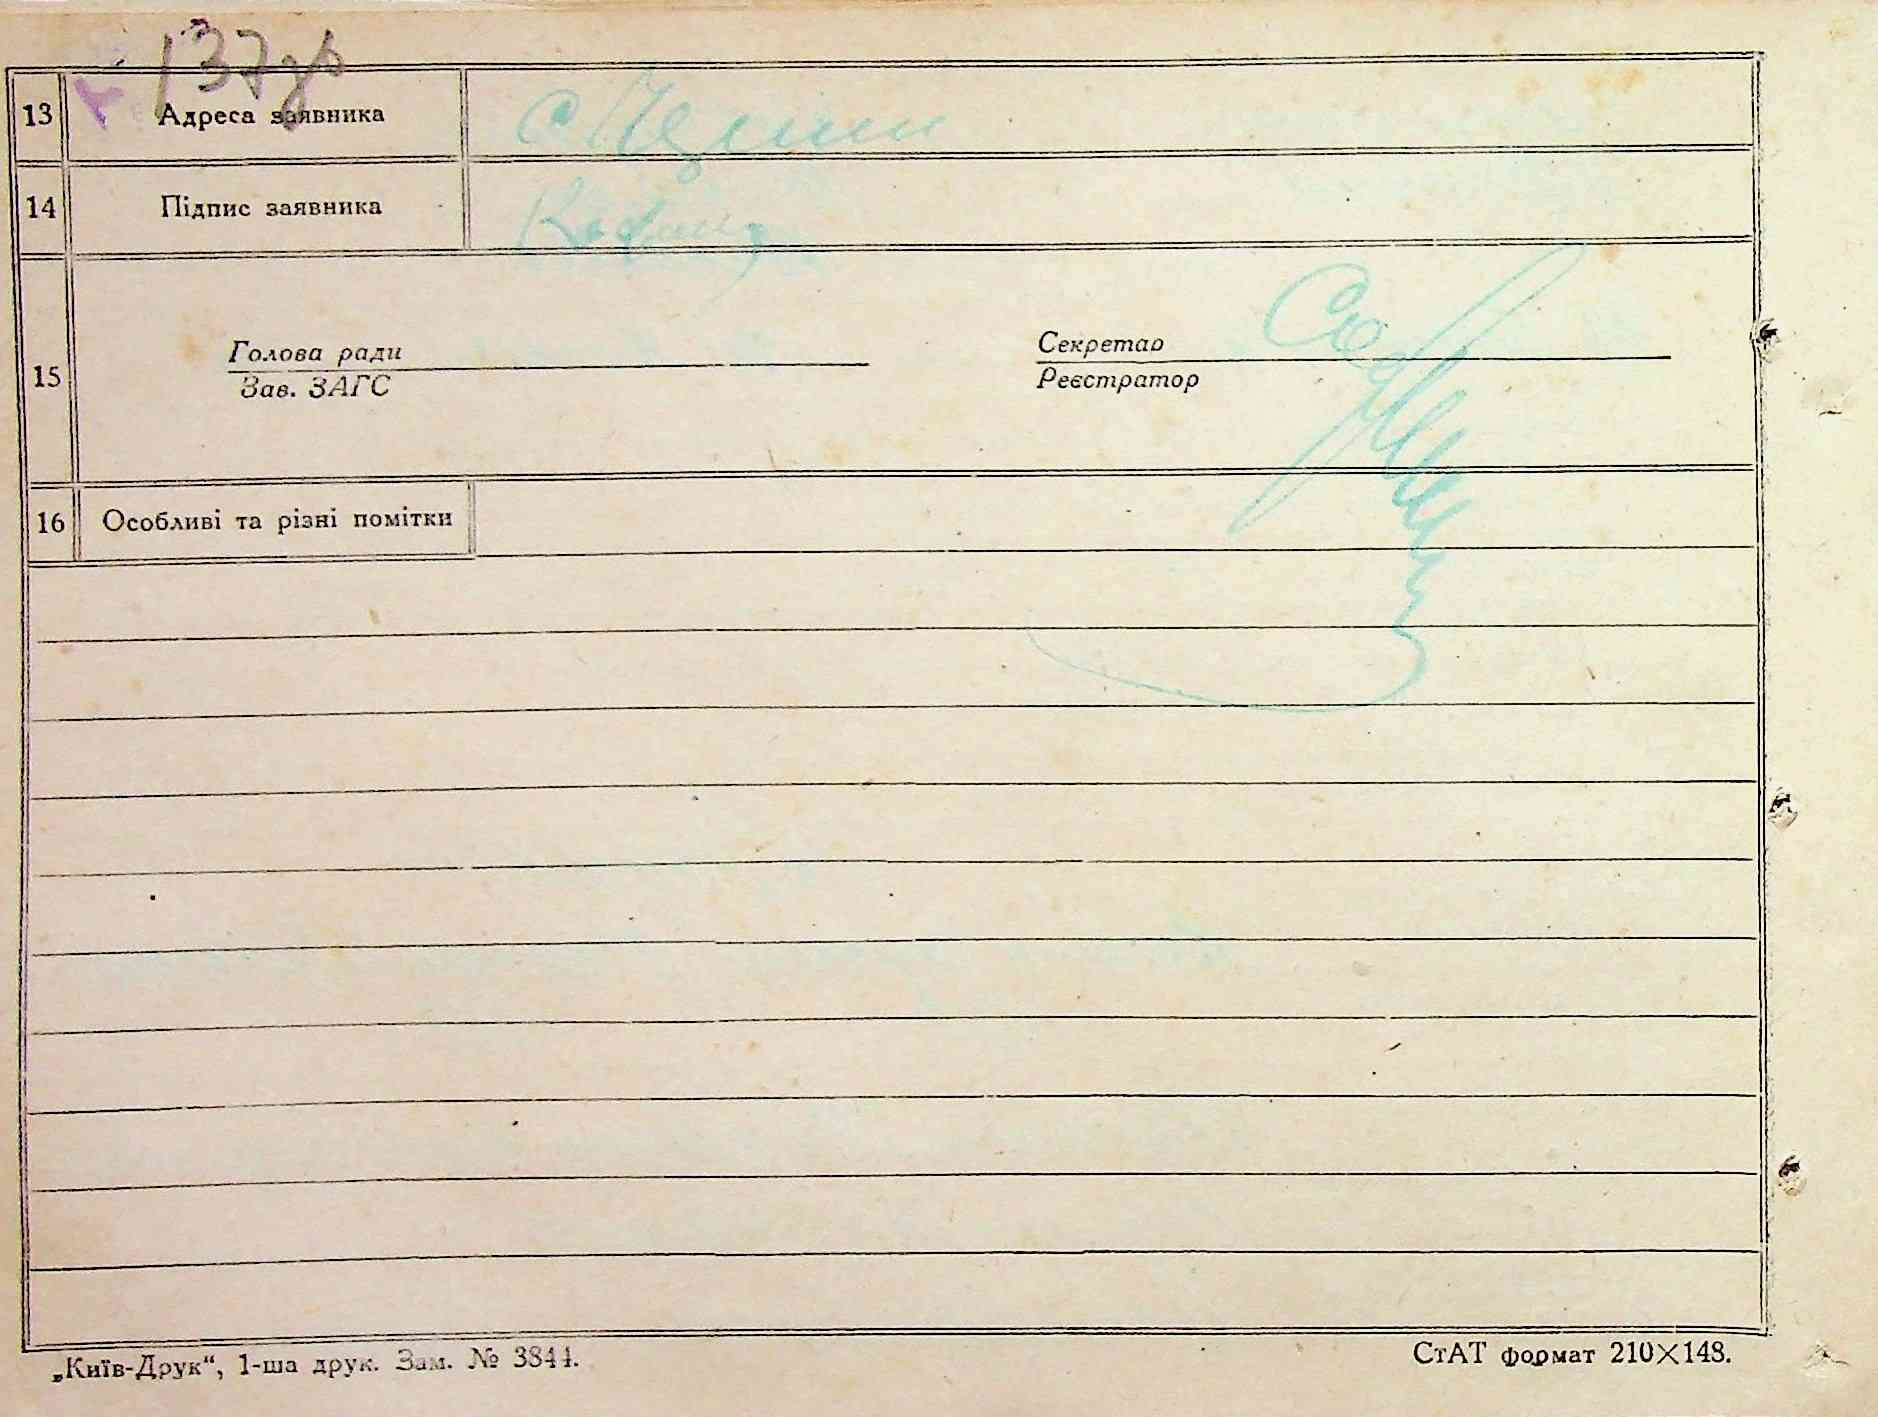 137 зв
13 Адреса заявника с.
14 Підпис заявника
Голова ради Секретар
15 Зав. ЗАГС Реєстратор
16 Особливі та різні помітки
„Київ-Друк“, 1-ша друк. Зам. № 3844. СтАТ формат 210×148.